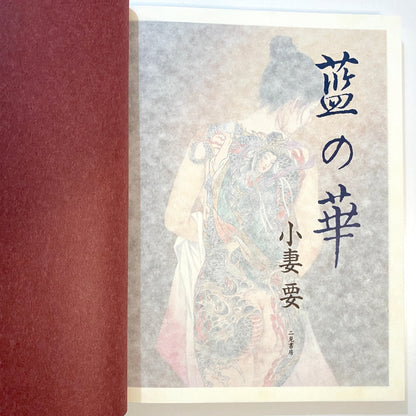 藍の華
小妻要
二見書房